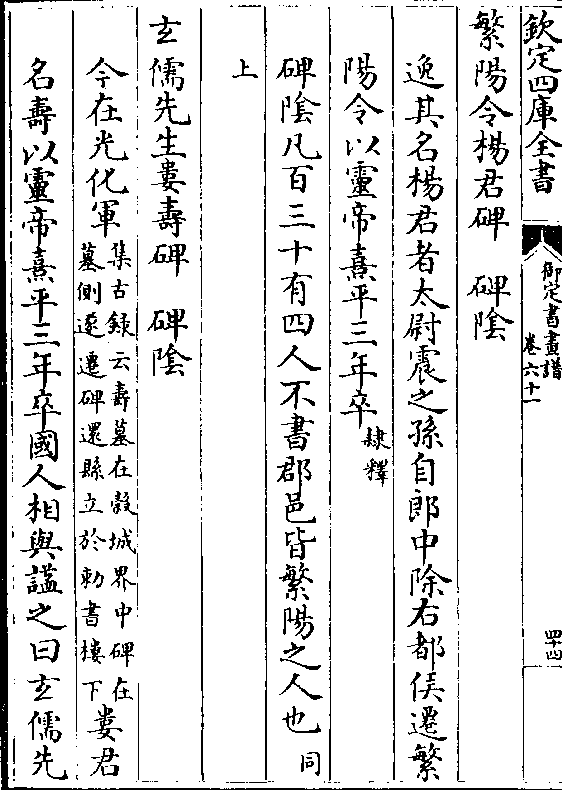 欽定四庫全書
御定書畫譜
卷六十一
四十四
繁陽令楊君碑　碑陰
逸其名楊君者太尉震之孫自郎中除右都侯遷繁
陽令以靈帝熹平三年卒隸釋
碑陰凡百三十有四人不書郡邑皆繁陽之人也同
上
玄儒先生婁壽碑　碑陰
今在光化軍集古錄云壽墓在穀城界中碑在墓側遂遷碑還縣立於勅書樓下婁君
名壽以靈帝熹平三年卒國人相與謚之曰玄儒先